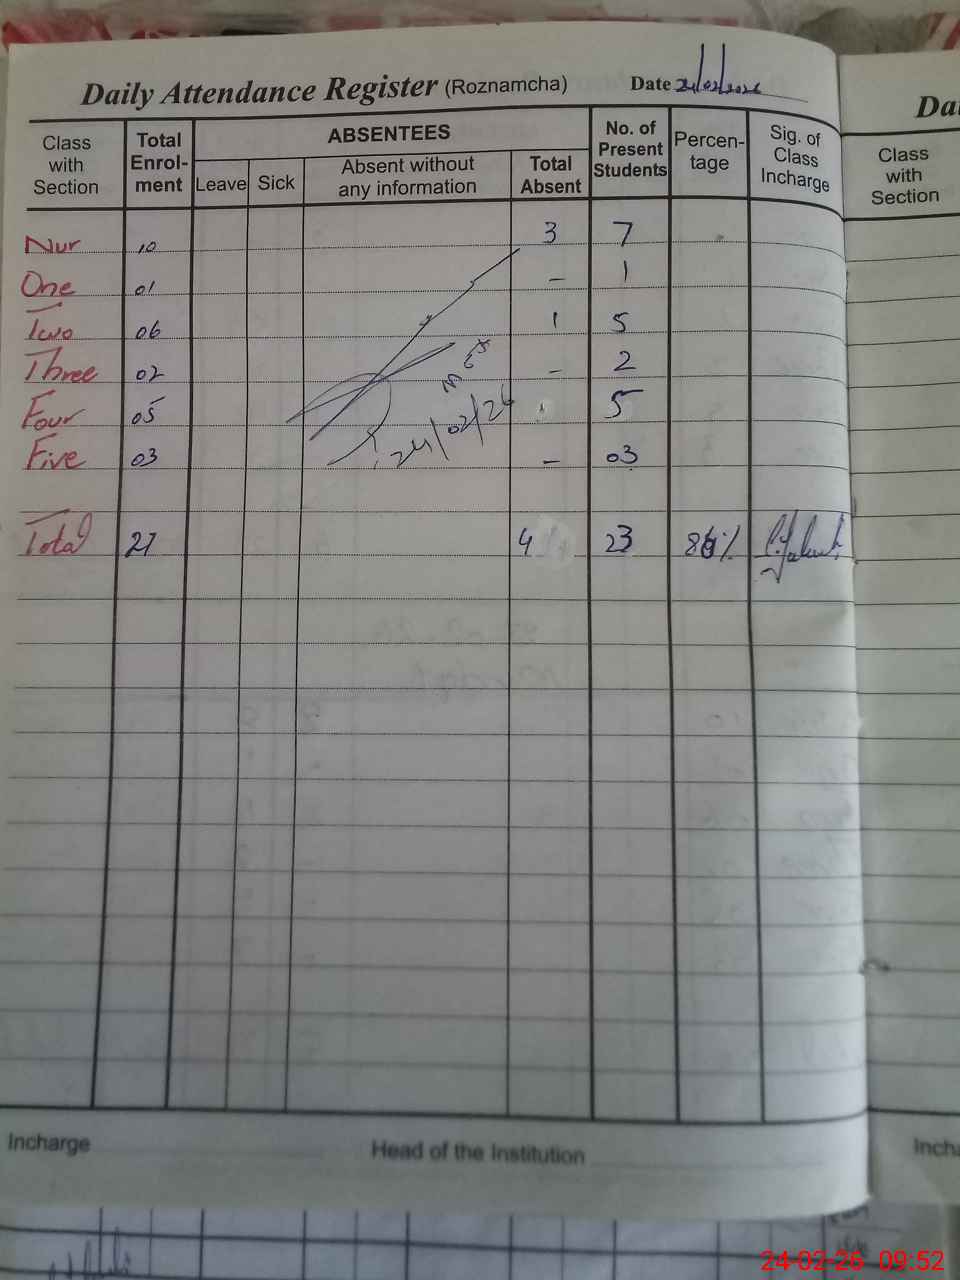 Daily Attendance Register (Roznamcha) Date 24/02/2026
Class with Section Total Enrol-ment ABSENTEES Leave Sick Absent without any information Total Absent No. of Present Students Percen-tage Sig. of Class Incharge
Nur 10 3 7
One 01 – 1
Two 06 1 5
Three 02 – 2
Four 05 5
Five 03 – 03
24/02/26
Total 27 4 23 %
Incharge Head of the Institution
Da
Class with Section
Incha
24-02-26 09:52